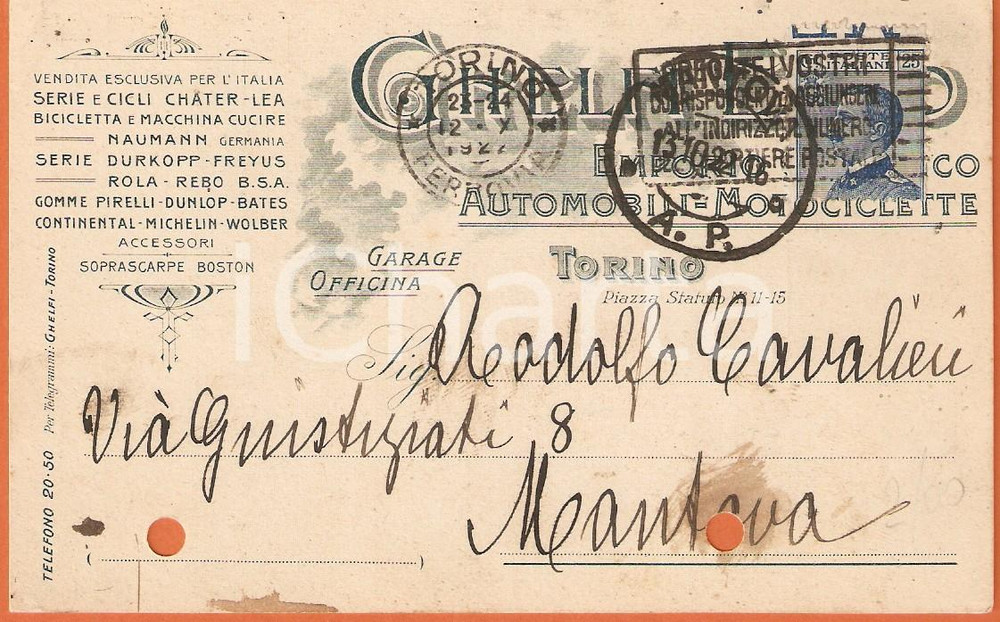 VENDITA ESCLUSIVA PER L'ITALIA
SERIE E CICLI CHÁTER-LEA
BICICLETTA E MACCHINA CUCIRE
NAUMANN GERMANIA
SERIE DURKOPP-FREYUS
ROLA-REBO B.S.A.
GOMME PIRELLI-DUNLOP-BATES
CONTINENTAL-MICHELIN-WOLBER
ACCESSORI
SOPRASCARPE BOSTON
TELEFONO 20-50 Per Telegrammi: GHELFI-TORINO
TORINO
23-24
12·X
1922
FERROVIA
GHELFI
EMPORIO
AUTOMOBILI-MOTOCICLETTE
GARAGE
OFFICINA
TORINO
Piazza Statuto N. 11-15
POSTE
ITALIANE
25
ALL'INDIRIZZO IL NUMERO
POSTALE
13.10.22.16
A. P.
Sig. Rodolfo Cavalieri
Vià Giustiziati 8
Mantova
iCharta